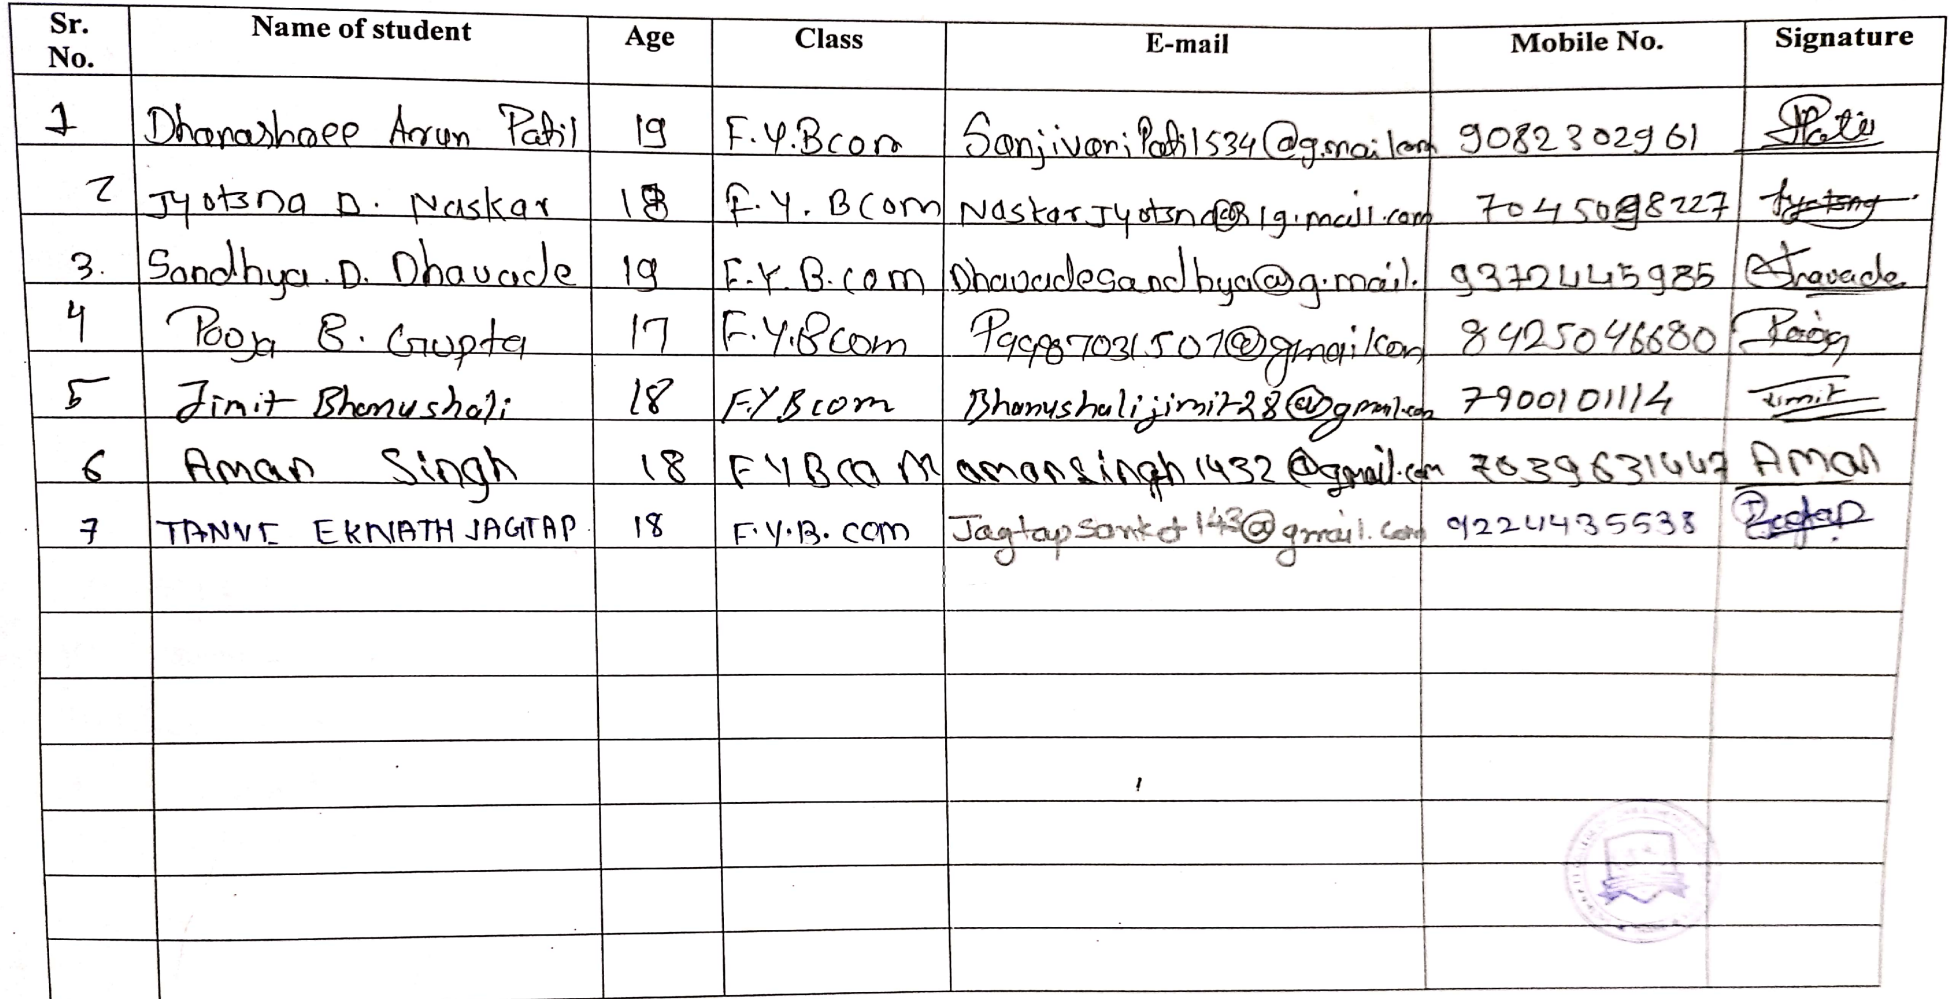 Sr. No. Name of student Age Class E-mail Mobile No. Signature
1 Dhanashree Arun Patil 19 F.Y.Bcom SanjivaniPatil534@gmailcom 9082302961 Patil
2 Jyotsna D. Naskar 18 F.Y. Bcom 7045098227 Jyotsna
3. Sandhya. D. Dhavade 19 F.Y. B.com Dhavadesandhya@g.mail. 9372445985 Dhavade
4 Pooja B. Gupta 17 F.Y.Bcom 8425046680 Pooja
5 Jimit Bhanushali 18 F.Y Bcom Bhanushalijimit28@gmail.com 7900101114 Jimit
6 Aman Singh 18 FYBCOM amansingh1432@gmail.com 7039631447 Aman
7 TANVI EKNATH JAGTAP 18 F.Y.B. com Jagtapsanket143@gmail.com 9224435538